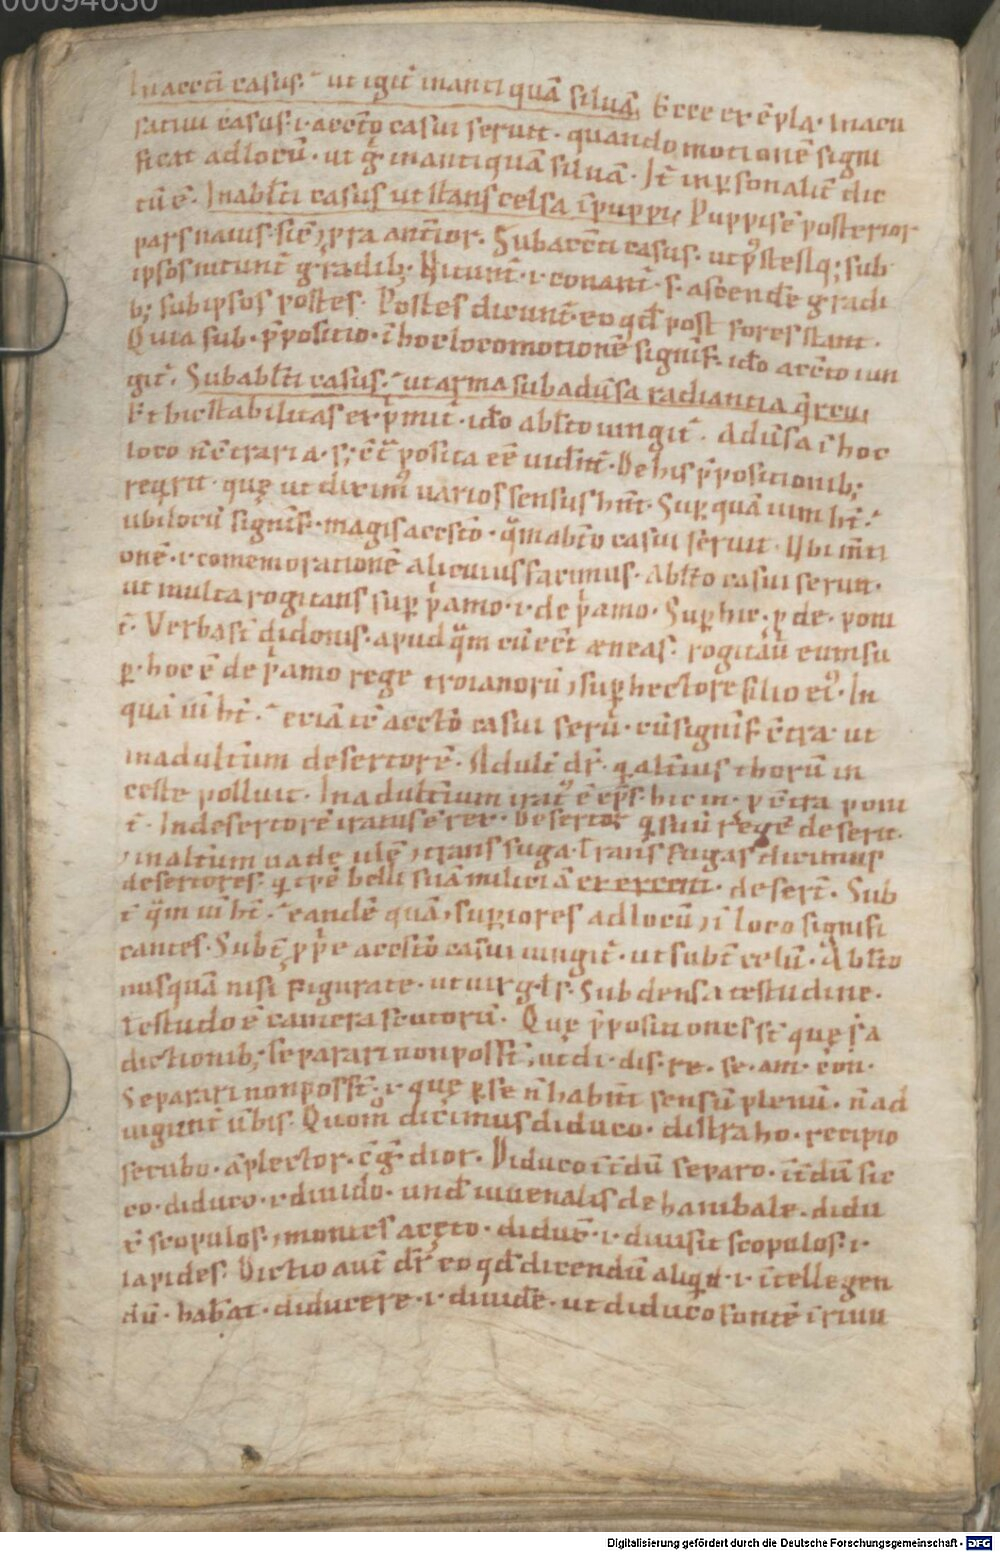 00094630
In accti casus. ut igit̄ in antiquā siluā. Ecce exēpla. In acu
satiui casus .i. accto casui seruit. quando motionē signi
ficat ad locū. ut ḡ in antiquā siluā. It̄ inp̱sonalit̄ dic
tū ē. In ablti casus ut stans celsa ī puppi, Puppis ē posterior
pars nauis. sic ⁊ pra anterior. Sub accti casus. ut p̄stesq; sub
ipsos nitunt̄ gradib; Nitunt̄ .i. conant̄ .s. ascendē gradi
b; sub ipsos postes. Postes dicunt̄ eo qd̄ post fores stant.
Quia sub. p̄positio. ī hoc loco motionē signif. idō accto iun
git̄. Sub ablti casus. ut arma sub adūsa radiantia q̄rcu,
Et hic stabilitas exp̄mit̄. idō ablto iungit̄. Adūsa ī hoc
loco n̄ ētraria. s; ēt̄ posita eē uidēnt̄. De his p̄positionib;
reqrit. quę ut diximꝰ uarios sensus hn̄t. Sup̱ quā uim ht̄.
ubi locū signif. magis accsto. q̄m abto casui seruit. Ubi m̄ti
onē .i. comemorationē alicuius facimus. ablto casui seruit.
ut multa rogitans sup̱ p̄amo .i. de p̄amo. Sup̱ hic. p̱ de. poni
t̄. Verba st̄ didonis. apud q̄m cū eēt æneas. rogitau eum su
p̱. hoc ē de p̄amo rege troianorū, sup̱ hectore filio eiꝰ. In
quā uī ht̄. etiā it̄ accto casui seru. cū signif ētra ut
in adulterium desertorē. Adulter dr̄. q alterius thorū in
ceste polluit. In adulterium iratꝰ ē ep̄s. hic in. p̱ ētra poni
t̄. In desertorē iratus ē rex. Desertor q suū regē deserit.
⁊ in alterum uadē ulē, transfuga. Transfugas dicimus
desertores. q tp̄re belli suā militiā exercent. desert̄. Sub
t̄ q̄m uī ht̄. eandē quā, sup̱iores ad locū ⁊ ī loco signifi
cantes. Subt̄ p̱p̄e accsto casui iungit̄. ut subt̄ celū. Ablto
nusquā nisi figurate. ut uirgls. Sub densa testudine.
Testudo ē camera scutorū. Quę p̄positiones st̄ quę s̄a
dictionib; separari non posst̄, ut di. dis. re. se. am. con.
Separari non posst̄ .i. quę p̱ se n̄ habn̄t sensū plenū. n̄ ad
iugunt̄ ūbis. Quom̄ dicimus diduco. distraho. recipio
secubo. āplector. ēgrēdior. Diduco īt̄dū separo. īt̄dū sic
co. diduco .i. diuido. und̄ iuuenalis de hanibale. didu
c̄ scopulos, montes acęto. diduc̄ .i. diuisit scopulos .i.
lapides. Dictio aut̄ dr̄ eo qd̄ dicendū aliqd .i. ītellegen
dū. habeat. diducere .i. diuidē. ut diduco fontē ī riuu
Digitalisierung gefördert durch die Deutsche Forschungsgemeinschaft - DFG